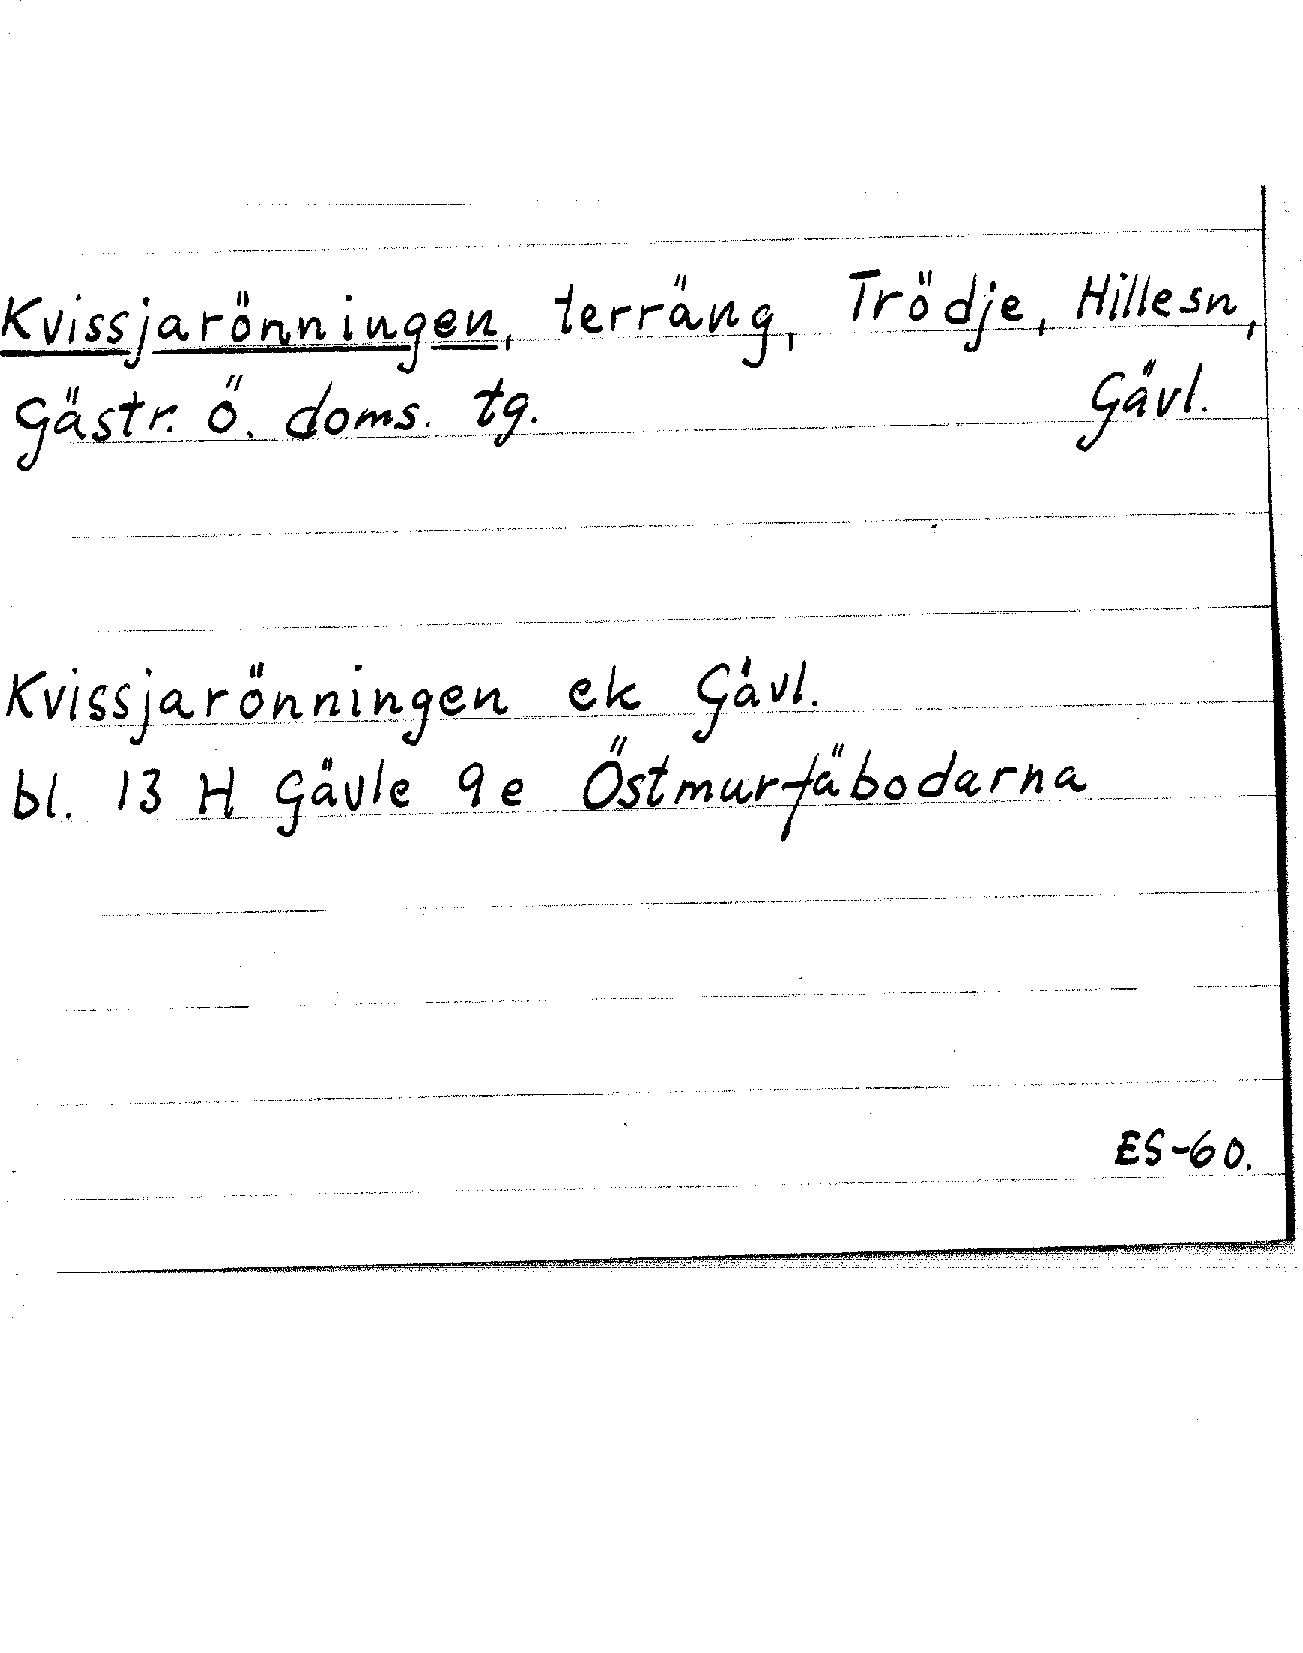 Kvissjarönningen, terräng, Trödje, Hillesn,
Gästr. Ö. doms. tg. Gävl.
Kvissjarönningen ek Gävl.
bl. 13 H Gävle 9e Östmurfäbodarna
ES-60.